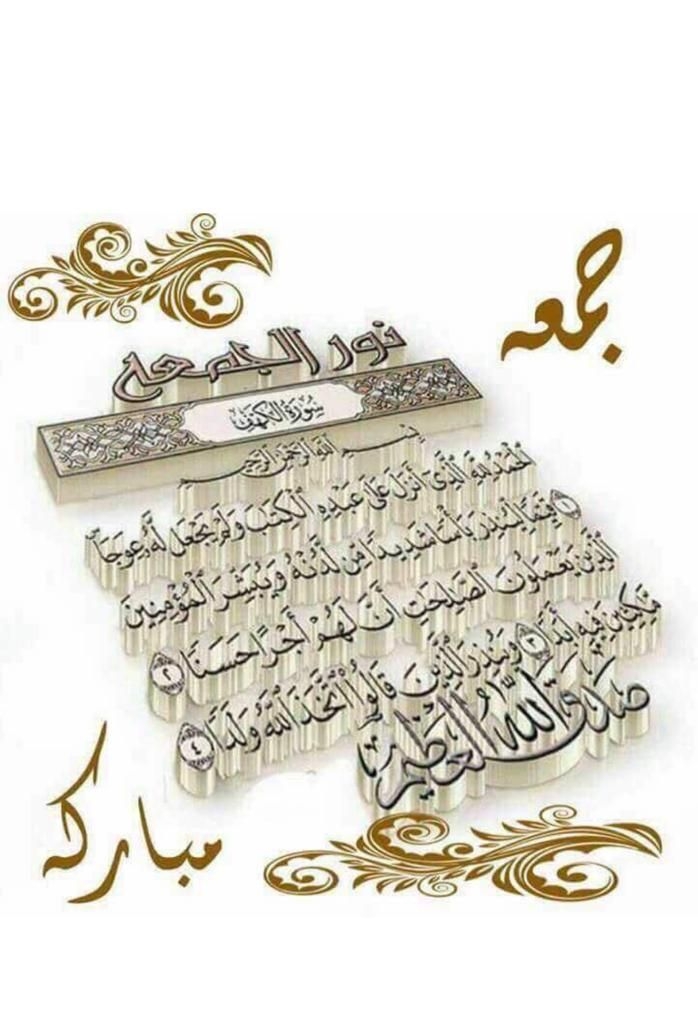 جمعه
نور الجمعه
سورة الكهف
بسم الله الرحمن الرحيم
الحمد لله الذي أنزل على عبده الكتب ولم يجعل له عوجا
۱ قيما لينذر بأسا شديدا من لدنه ويبشر المؤمنين
الذين يعملون الصلحت أن لهم أجرا حسنا ۲
مكثين فيه أبدا ۳ وينذر الذين قالوا اتخذ الله ولدا ٤
صدق الله العظيم
مباركه